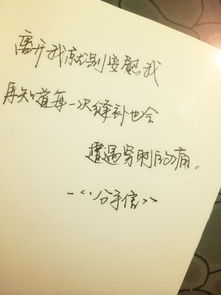 离开我就别安慰我
要知道每一次缝补也会
遭遇穿刺的痛。
—《分手信》